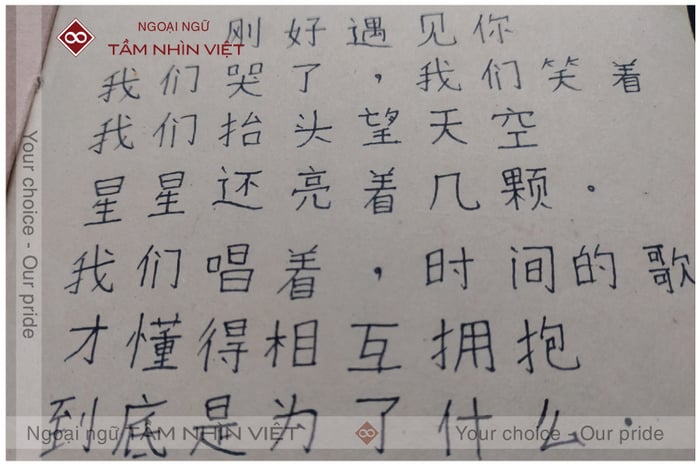 NGOẠI NGỮ
TẦM NHÌN VIỆT
刚好遇见你
我们哭了，我们笑着
我们抬头望天空
星星还亮着几颗．
我们唱着，时间的歌
才懂得相互拥抱
到底是为了什么．
Your choice - Our pride
Ngoại ngữ TẦM NHÌN VIỆT
Your choice - Our pride